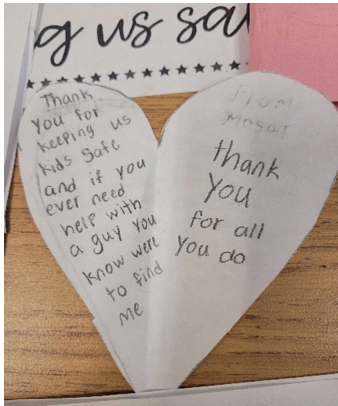 g us sa
Thank
you for
keeping us
kids safe
and if you
ever need
help with
a guy you
know were
to find
me
From
thank
you
for all
you do